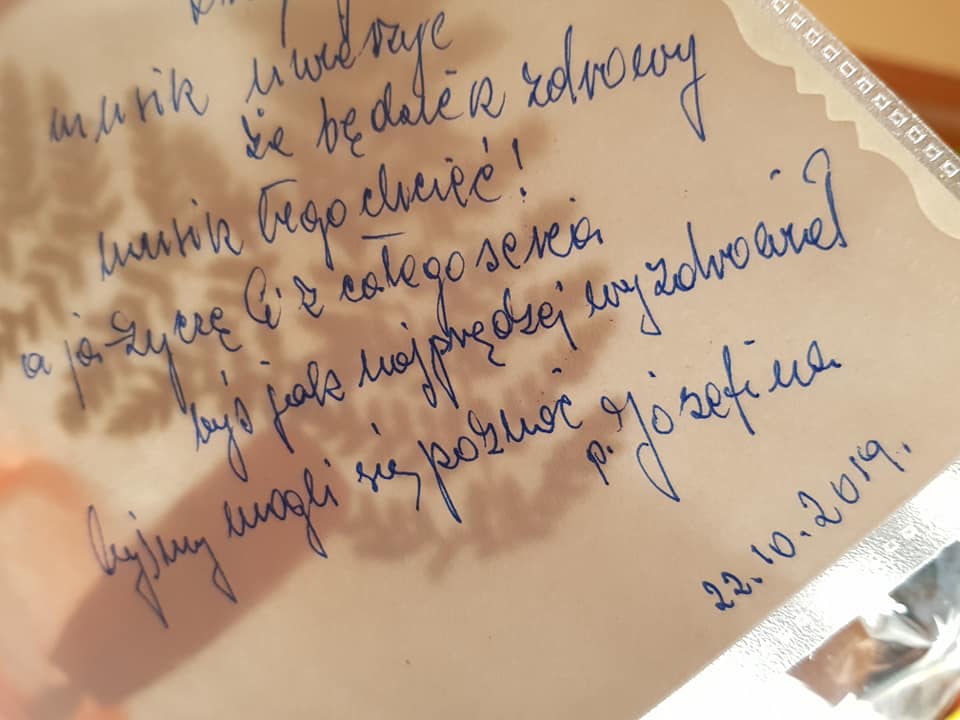 musik uwierzyć
że będziek zdrowy
musik tego chcieć!
a ja życzę Ci z całego serca
byś jak najprędzej wyzdrowiał
byśmy mogli się poznać
p. Józefina
22.10.2019.